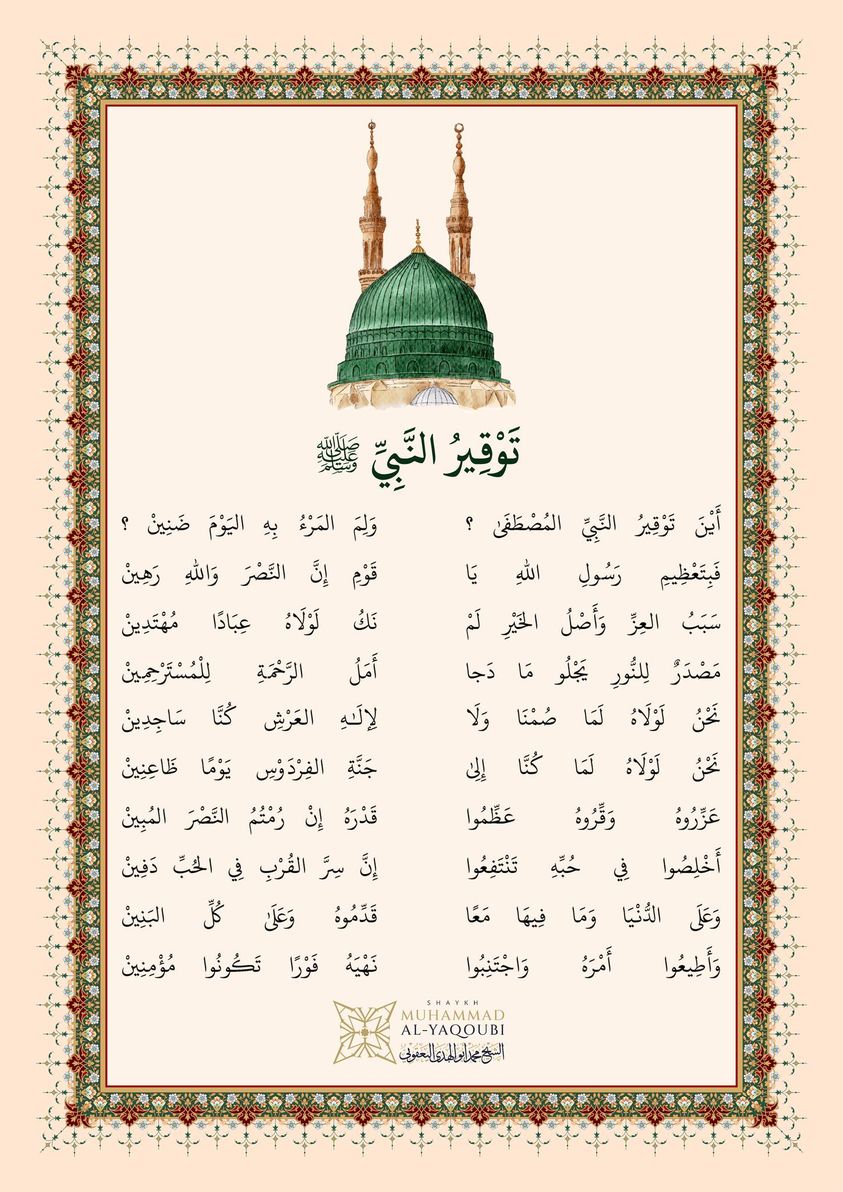 تَوْقِيرُ النَّبِيِّ ﷺ
أَيْنَ تَوْقِيرُ النَّبِيِّ المُصْطَفَىٰ ؟ وَلِمَ المَرْءُ بِهِ اليَوْمَ ضَنِينْ ؟
فَبِتَعْظِيمِ رَسُولِ اللهِ يَا قَوْمِ إِنَّ النَّصْرَ وَاللهِ رَهِينْ
سَبَبُ العِزِّ وَأَصْلُ الخَيْرِ لَمْ نَكُ لَوْلَاهُ عِبَادًا مُهْتَدِينْ
مَصْدَرٌ لِلنُّورِ يَجْلُو مَا دَجا أَمَلُ الرَّحْمَةِ لِلْمُسْتَرْحِمِينْ
نَحْنُ لَوْلَاهُ لَمَا صُمْنَا وَلَا لِإِلَـٰهِ العَرْشِ كُنَّا سَاجِدِينْ
نَحْنُ لَوْلَاهُ لَمَا كُنَّا إِلىٰ جَنَّةِ الفِرْدَوْسِ يَوْمًا ظَاعِنِينْ
عَزِّرُوهُ وَقِّرُوهُ عَظِّمُوا قَدْرَهُ إِنْ رُمْتُمُ النَّصْرَ المُبِينْ
أَخْلِصُوا فِي حُبِّهِ تَنْتَفِعُوا إِنَّ سِرَّ القُرْبِ فِي الحُبِّ دَفِينْ
وَعَلَى الدُّنْيَا وَمَا فِيهَا مَعًا قَدِّمُوهُ وَعَلَىٰ كُلِّ البَنِينْ
وَأَطِيعُوا أَمْرَهُ وَاجْتَنِبُوا نَهْيَهُ فَوْرًا تَكُونُوا مُؤْمِنِينْ
SHAYKH
MUHAMMAD
AL-YAQOUBI
الشيخ محمد أبو الهدى اليعقوبي